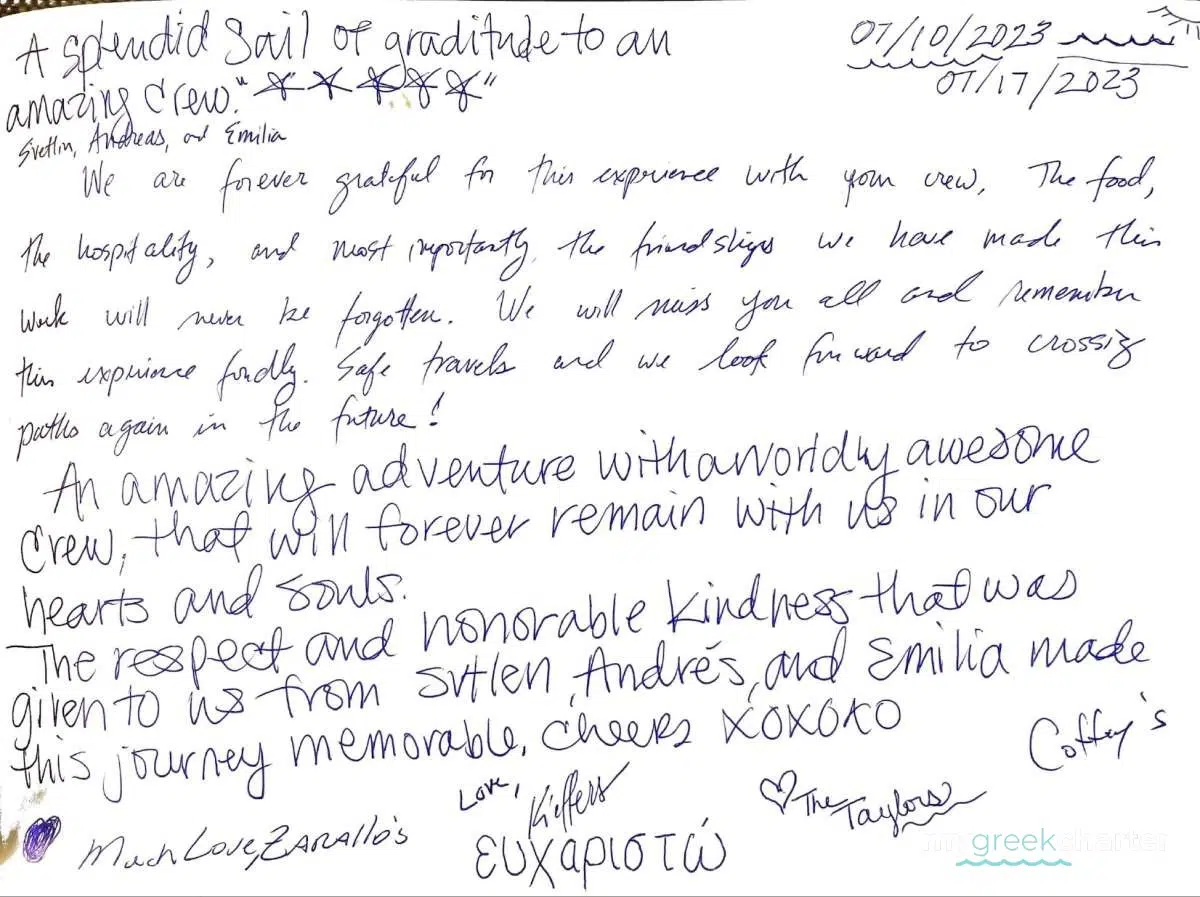 A splendid Sail of graditude to an
07/10/2023
07/17/2023
amazing Crew." ☆☆☆☆☆"
Svetlin, Andreas, and Emilia
We are forever grateful for this experience with your crew. The food,
the hospitality, and most importantly, the friendships we have made this
week will never be forgotten. We will miss you all and remember
this experience fondly. Safe travels and we look forward to crossing
paths again in the future!
An amazing adventure with a worldly awesome
Crew, that will forever remain with us in our
hearts and souls.
The respect and honorable kindness that was
given to us from Svtlen, Andrés, and Emilia made
this journey memorable. Cheers XOXOXO
Coffey's
Love, Kieffers
♡ The Taylors
Much Love, ZARALLO's
ευχαριστώ
my greek charter